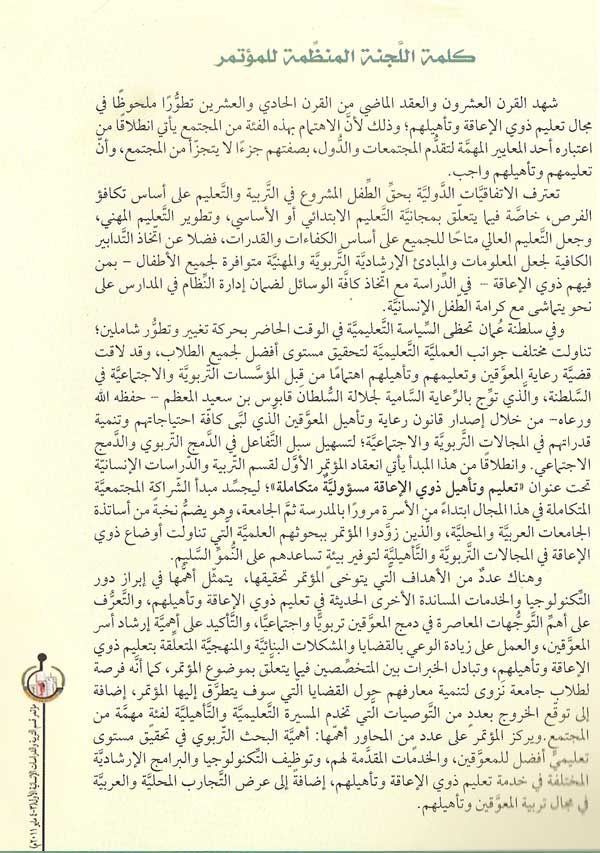 كلمة اللَّجنة المنظِّمة للمؤتمر
شهد القرن العشرون والعقد الماضي من القرن الحادي والعشرين تطوُّرًا ملحوظًا في
مجال تعليم ذوي الإعاقة وتأهيلهم؛ وذلك لأنَّ الاهتمام بهذه الفئة من المجتمع يأتي انطلاقًا من
اعتباره أحد المعايير المهمَّة لتقدُّم المجتمعات والدُّول، بصفتهم جزءًا لا يتجزّأ من المجتمع، وأنَّ
تعليمهم وتأهيلهم واجب.
تعترف الاتفاقيَّات الدَّوليَّة بحقِّ الطِّفل المشروع في التَّربية والتَّعليم على أساس تكافؤ
الفرص، خاصَّة فيما يتعلّق بمجانيَّة التَّعليم الابتدائي أو الأساسي، وتطوير التَّعليم المهني،
وجعل التَّعليم العالي متاحًا للجميع على أساس الكفاءات والقدرات، فضلا عن اتّخاذ التَّدابير
الكافية لجعل المعلومات والمبادئ الإرشاديَّة التَّربويَّة والمهنيَّة متوافرة لجميع الأطفال - بمن
فيهم ذوي الإعاقة - في الدِّراسة مع اتّخاذ كافَّة الوسائل لضمان إدارة النِّظام في المدارس على
نحو يتماشى مع كرامة الطّفل الإنسانيَّة.
وفي سلطنة عُمان تحظى السِّياسة التَّعليميَّة في الوقت الحاضر بحركة تغيير وتطوُّر شاملين؛
تناولت مختلف جوانب العمليَّة التَّعليميَّة لتحقيق مستوى أفضل لجميع الطلاب، وقد لاقت
قضيَّة رعاية المعوَّقين وتعليمهم وتأهيلهم اهتمامًا من قِبل المؤسَّسات التَّربويَّة والاجتماعيَّة في
السَّلطنة، والَّذي توِّج بالرِّعاية السَّامية لجلالة السُّلطان قابوس بن سعيد المعظم - حفظه الله
ورعاه- من خلال إصدار قانون رعاية وتأهيل المعوَّقين الَّذي لبَّى كافّة احتياجاتهم وتنمية
قدراتهم في المجالات التَّربويَّة والاجتماعيَّة؛ لتسهيل سبل التَّفاعل في الدَّمج التَّربوي والدَّمج
الاجتماعي. وانطلاقًا من هذا المبدأ يأتي انعقاد المؤتمر الأوَّل لقسم التَّربية والدِّراسات الإنسانيَّة
تحت عنوان «تعليم وتأهيل ذوي الإعاقة مسؤوليَّةٌ متكاملة»؛ ليجسِّد مبدأ الشّراكة المجتمعيَّة
المتكاملة في هذا المجال ابتداءً من الأسرة مرورًا بالمدرسة ثمَّ الجامعة، وهو يضمُّ نخبةً من أساتذة
الجامعات العربيَّة والمحليَّة، والَّذين زوَّدوا المؤتمر ببحوثهم العلميَّة الَّتي تناولت أوضاع ذوي
الإعاقة في المجالات التَّربويَّة والتَّأهيليَّة لتوفير بيئةٍ تساعدهم على النُّموِّ السَّليم.
وهناك عددٌ من الأهداف الَّتي يتوخى المؤتمر تحقيقها، يتمثّل أهمُّها في إبراز دور
التِّكنولوجيا والخدمات المساندة الأخرى الحديثة في تعليم ذوي الإعاقة وتأهيلهم، والتَّعرُّف
على أهمِّ التَّوجُّهات المعاصرة في دمج المعوَّقين تربويًّا واجتماعيًّا، والتَّأكيد على أهميَّة إرشاد أسر
المعوَّقين، والعمل على زيادة الوعي بالقضايا والمشكلات البنائيَّة والمنهجيَّة المتعلِّقة بتعليم ذوي
الإعاقة وتأهيلهم، وتبادل الخبرات بين المتخصِّصين فيما يتعلَّق بموضوع المؤتمر، كما أنَّه فرصة
لطلاب جامعة نَزوى لتنمية معارفهم حول القضايا الَّتي سوف يتطرَّق إليها المؤتمر، إضافة
إلى توقّع الخروج بعددٍ من التَّوصيات الَّتي تخدم المسيرة التَّعليميَّة والتَّأهيليَّة لفئةٍ مهمَّة من
المجتمع.ويركز المؤتمر على عددٍ من المحاور أهمّها: أهميَّة البحث التَّربوي في تحقيق مستوى
تعليميٍّ أفضل للمعوَّقين، والخدمات المقدَّمة لهم، وتوظيف التِّكنولوجيا والبرامج الإرشاديَّة
المختلفة في خدمة تعليم ذوي الإعاقة وتأهيلهم، إضافةً إلى عرض التَّجارب المحليَّة والعربيَّة
في مجال تربية المعوَّقين وتأهيلهم.
مؤتمر قسم التربية والدراسات الإنسانية الأول (٣-٤ مايو ٢٠١١م)